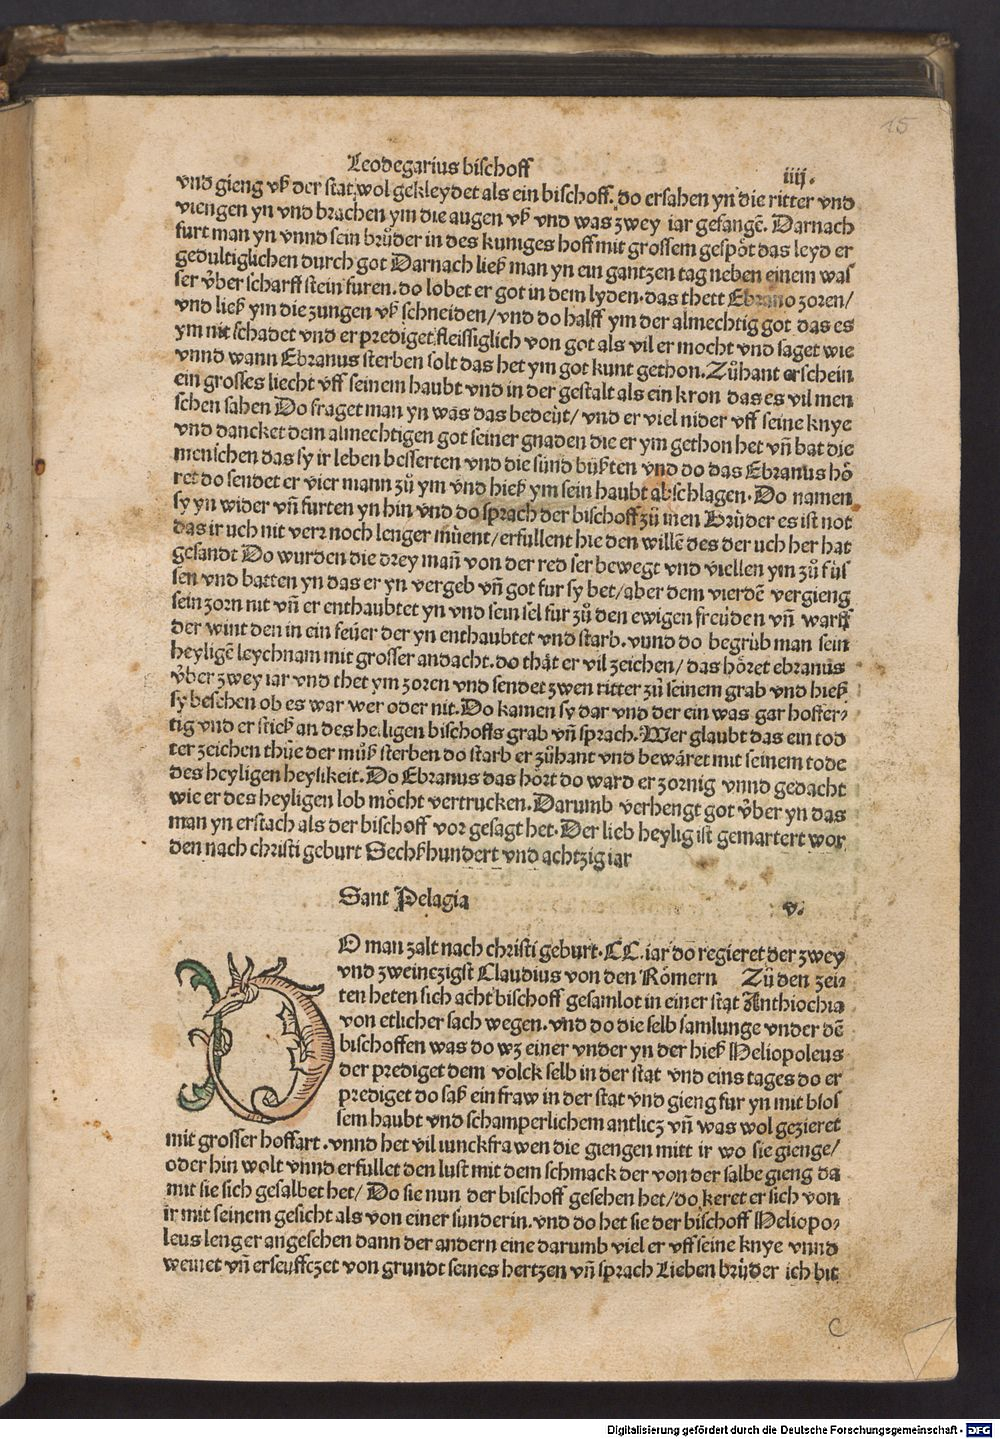 15
Leodegarius bischoff
iiij.
vnd gieng vß der stat wol gekleydet als ein bischoff. do ersahen yn die ritter vnd
viengen yn vnd brachen ym die augen vß vnd was zwey iar gefangē. Darnach
furt man yn vnnd sein brůder in des kuniges hoff mit grossem gespöt das leyd er
gedultiglichen durch got Darnach ließ man yn ein gantzen tag neben einem was
ser v̊ber scharff stein furen. do lobet er got in dem lyden. das thett Ebrano zoren/
vnd ließ ym die zungen vß schneiden/ vnd do halff ym der almechtig got das es
ym nit schadet vnd er prediget fleissiglich von got als vil er mocht vnd saget wie
vnnd wann Ebranus sterben solt das het ym got kunt gethon. Zůhant erschein
ein grosses liecht vff seinem haubt vnd in der gestalt als ein kron das es vil men
schen sahen Do fraget man yn was das bedeüt/ vnd er viel nider vff seine knye
vnd dancket dem almechtigen got seiner gnaden die er ym gethon het vñ bat die
menschen das sy ir leben besserten vnd die sünd bůßten vnd do das Ebranus hö
ret do sendet er vier mann zů ym vnd hieß ym sein haubt abschlagen. Do namen
sy yn wider vñ furten yn hin vnd do sprach der bischoff zů inen Brůder es ist not
das ir uch nit verr noch lenger müent/ erfullent hie den willē des der uch her hat
gesandt Do wurden die drey mañ von der red ser bewegt vnd viellen ym zů füs
sen vnd batten yn das er yn vergeb vñ got fur sy bet/ aber dem vierdē vergieng
sein zorn nit vñ er enthaubtet yn vnd sein sel fur zů den ewigen freüden vñ warff
der wint den in ein feüer der yn enthaubtet vnd starb. vnnd do begrůb man sein
heyligē leychnam mit grosser andacht. do thät er vil zeichen/ das höret ebranus
v̊ber zwey iar vnd thet ym zoren vnd sendet zwen ritter zů seinem grab vnd hieß
sy besehen ob es war wer oder nit. Do kamen sy dar vnd der ein was gar hoffer/
tig vnd er stieß an des heiligen bischoffs grab vñ sprach. Wer glaubt das ein tod
ter zeichen thüe der můß sterben do starb er zůhant vnd bewäret mit seinem tode
des heyligen heylikeit. Do Ebranus das hört do ward er zornig vnnd gedacht
wie er des heyligen lob möcht vertrucken. Darumb verhengt got v̊ber yn das
man yn erstach als der bischoff vor gesagt het. Der lieb heylig ist gemartert wor
den nach christi geburt Sechßhundert vnd achtzig iar
Sant Pelagia
v.
DO man zalt nach christi geburt. CC. iar do regieret der zwey
vnd zweinczigst Claudius von den Römern Zů den zei/
ten heten sich acht bischoff gesamlot in einer stat Anthiochia
von etlicher sach wegen. vnd do die selb samlunge vnder dē
bischoffen was do wz einer vnder yn der hieß Heliopoleus
der prediget dem volck selb in der stat vnd eins tages do er
prediget do saß ein fraw in der stat vnd gieng fur yn mit blos
sem haubt vnd schamperlichem antlicz vñ was wol gezieret
mit grosser hoffart. vnnd het vil iunckfrawen die giengen mitt ir wo sie gienge/
oder hin wolt vnnd erfullet den lust mit dem schmack der von der salbe gieng da
mit sie sich gesalbet het/ Do sie nun der bischoff gesehen het/ do keret er sich von
ir mit seinem gesicht als von einer sünderin. vnd do het sie der bischoff Heliopo/
leus lenger angesehen dann der andern eine darumb viel er vff seine knye vnnd
weinet vñ erseuffczet von grundt seines hertzen vñ sprach Lieben brüder ich bit
C
Digitalisierung gefördert durch die Deutsche Forschungsgemeinschaft - DFG